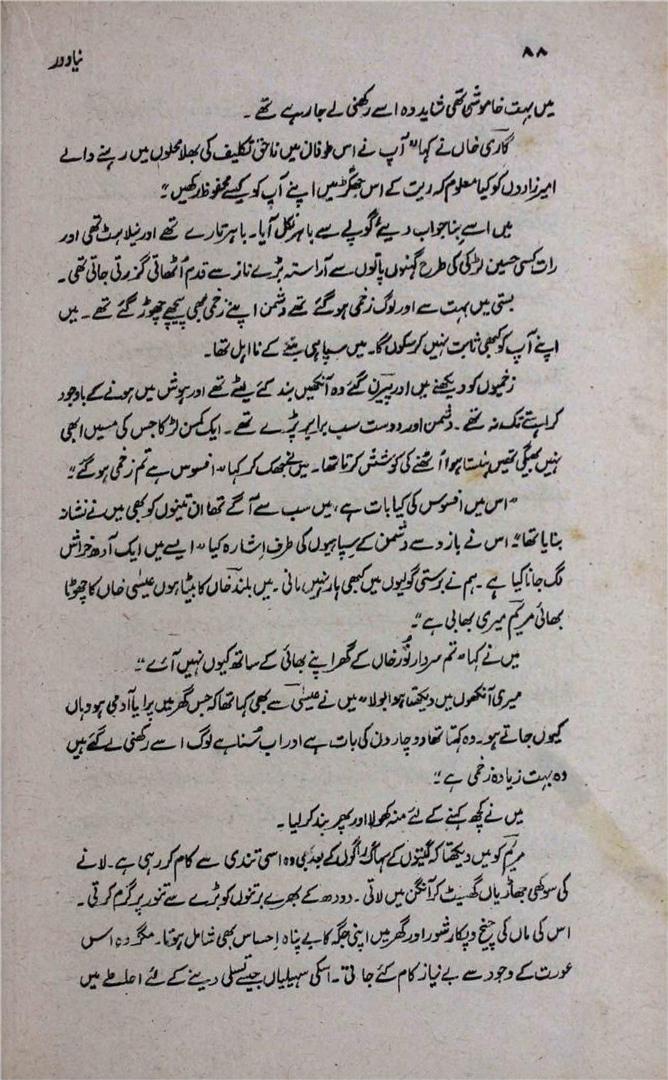 ۸۸
نیا دور
میں بہت خاموشی تھی شاید وہ اسے رکھنی لے جا رہے تھے ۔
گاری خاں نے کہا" آپ نے اس طوفان میں ناحق تکلیف کی بھلا محلوں میں رہنے والے
امیر زادوں کو کیا معلوم کہ ریت کے اس جھکڑ میں اپنے آپ کو کیسے محفوظ رکھیں"۔
میں اسے بنا جواب دیئے گوپے سے باہر نکل آیا۔ باہر تارے تھے اور نیلاہٹ تھی اور
رات کسی حسین لڑکی کی طرح گہنوں پاتوں سے آراستہ بڑے ناز سے قدم اُٹھاتی گزرتی جاتی تھی ۔
بستی میں بہت سے اور لوگ زخمی ہو گئے تھے دشمن اپنے زخمی بھی پیچھے چھوڑ گئے تھے ۔ میں
اپنے آپ کو کبھی ثابت نہیں کر سکوں گا۔ میں سپاہی بننے کے نا اہل تھا۔
زخمیوں کو دیکھنے میں اور پیرن گئے وہ آنکھیں بند کئے لیٹے تھے اور ہوش میں ہونے کے باوجود
کراہتے تک نہ تھے ۔ دشمن اور دوست سب برابر پڑے تھے ۔ ایک کمسن لڑکا جس کی مسیں ابھی
نہیں بھیگی تھیں ہنستا ہوا اُٹھنے کی کوشش کرتا تھا۔ میں نے جھک کر کہا" افسوس ہے تم زخمی ہو گئے"۔
"اس میں افسوس کی کیا بات ہے، میں سب سے آگے تھا ان تینوں کو بھی میں نے نشانہ
بنایا تھا"۔ اس نے بازو سے دشمن کے سپاہیوں کی طرف اشارہ کیا" ایسے میں ایک آدھ خراش
لگ جانا کیا ہے ۔ ہم نے برستی گولیوں میں کبھی ہار نہیں مانی ۔ میں بلند خاں کا بیٹا ہوں عیسٰی خاں کا چھوٹا
بھائی مریم میری بھابی ہے"۔
میں نے کہا" تم سردار نُور خاں کے گھر اپنے بھائی کے ساتھ کیوں نہیں آئے"۔
میری آنکھوں میں دیکھتا ہوا بولا" میں نے عیسٰی سے بھی کہا تھا کہ جس گھر میں پرایا آدمی ہو وہاں
کیوں جاتے ہو۔ وہ کہتا تھا دو چار دن کی بات ہے اور اب سُنا ہے لوگ اسے رکھنی لے گئے ہیں
وہ بہت زیادہ زخمی ہے"۔
میں نے کچھ کہنے کے لئے منہ کھولا اور پھر بند کر لیا ۔
مریم کو میں دیکھتا کہ گیتوں کے سہاگ راگوں کے بعد بھی وہ اسی تندی سے کام کر رہی ہے ۔ لانے
کی سوکھی جھاڑیاں گھسیٹ کر آنگن میں لاتی ۔ دودھ کے بھرے برتنوں کو بڑے سے تنور پر گرم کرتی ۔
اس کی ماں کی چیخ و پکار شور اور گھر میں اپنی جگہ کا بے پناہ احساس بھی شامل ہوتا۔ مگر وہ اس
عورت کے وجود سے بے نیاز کام کئے جاتی ۔ اسکی سہیلیاں جیسے تسلی دینے کے لئے احاطے میں